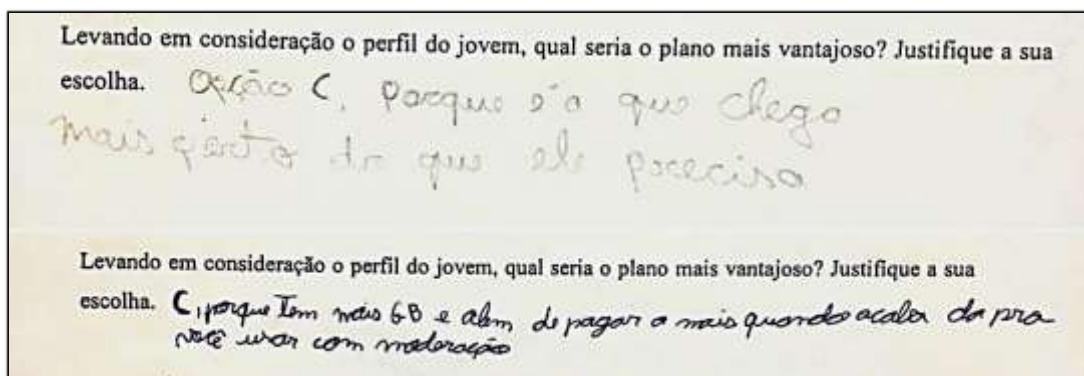 Levando em consideração o perfil do jovem, qual seria o plano mais vantajoso? Justifique a sua
escolha. Opção C, Porque é a que chega
mais perto do que ele precisa
Levando em consideração o perfil do jovem, qual seria o plano mais vantajoso? Justifique a sua
escolha. C, porque Tem mais GB e alem de pagar a mais quando acaba da pra
você usar com moderação